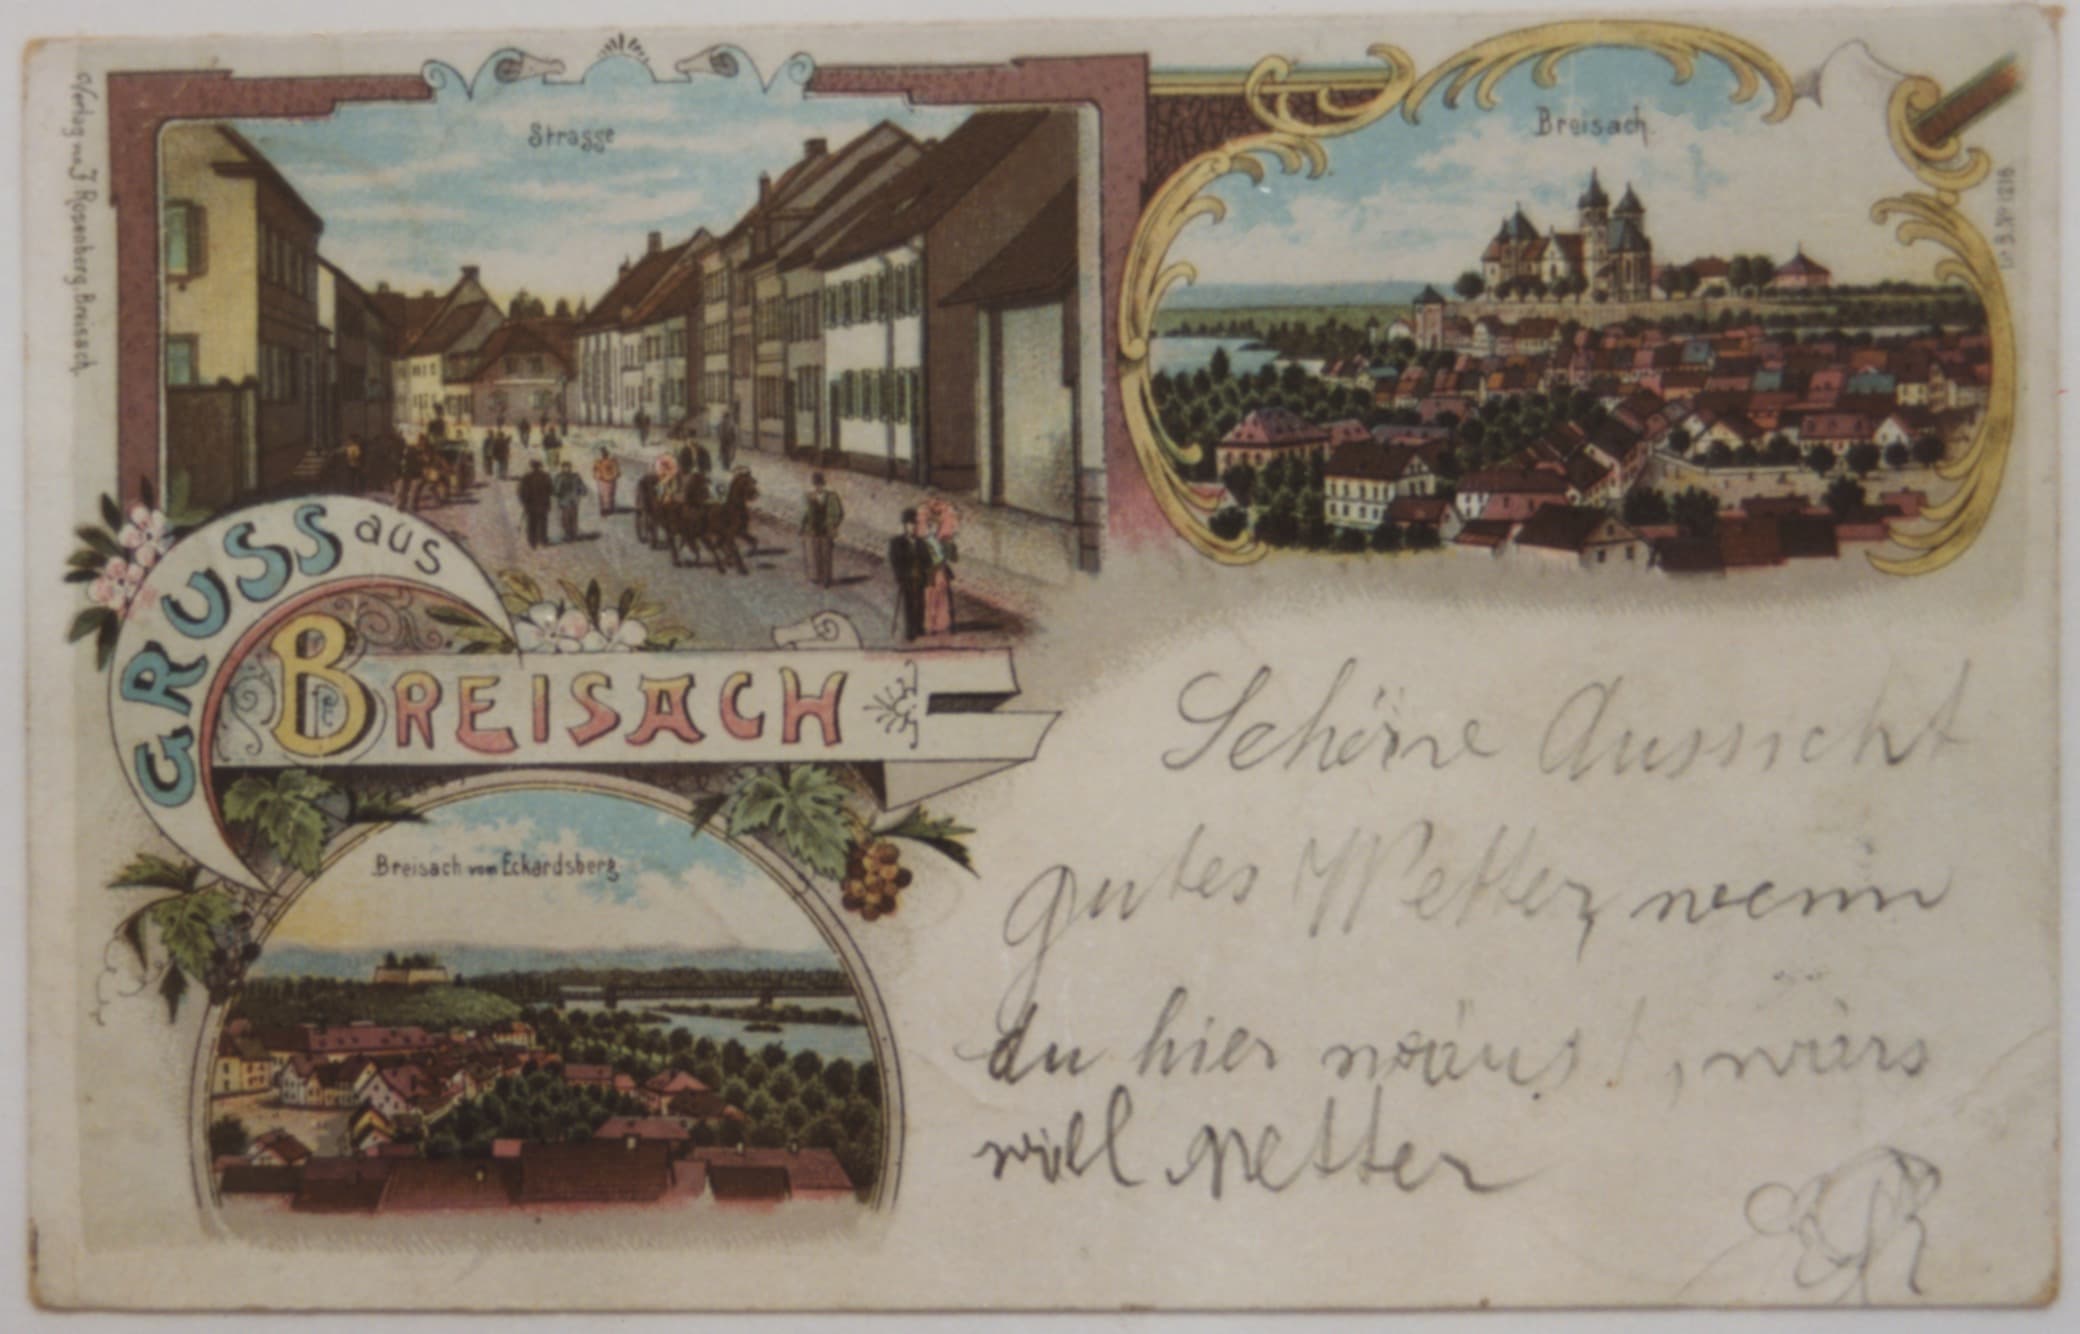 Verlag von J. Rosenberg, Breisach.
Strasse
Breisach.
GRUSS aus
BREISACH
Breisach vom Eckardsberg.
Schöne Aussicht
gutes Wetter wenn
du hier wärest, wärs
viel netter